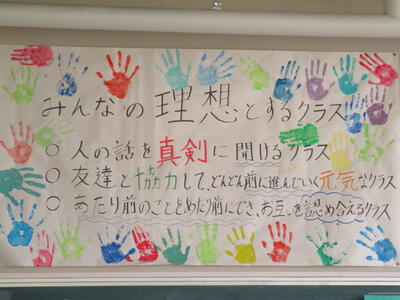 みんなの理想とするクラス
○ 人の話を真剣に聞けるクラス
○ 友達と協力して、どんどん前に進んでいく元気なクラス
○ あたり前のことをあたり前にでき、お互いを認め合えるクラス